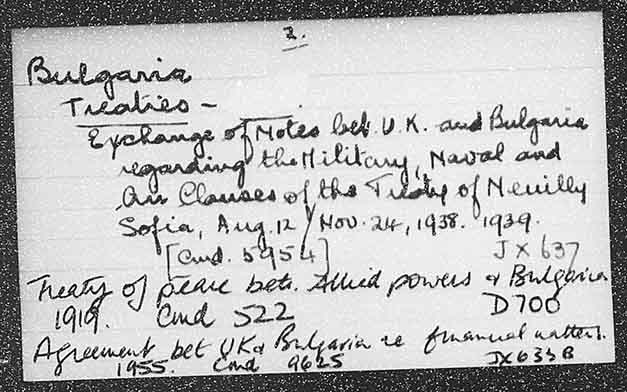 2.
Bulgaria
Treaties -
Exchange of Notes bet. U.K. and Bulgaria
regarding the Military, Naval and
Air Clauses of the Treaty of Neuilly
Sofia, Aug. 12 / Nov. 24, 1938. 1939.
[Cmd. 5954] JX 637
Treaty of peace bet. Allied powers & Bulgaria
1919. Cmd 522 D700
Agreement bet UK & Bulgaria re financial matters.
1955. Cmd 9625 JX633B